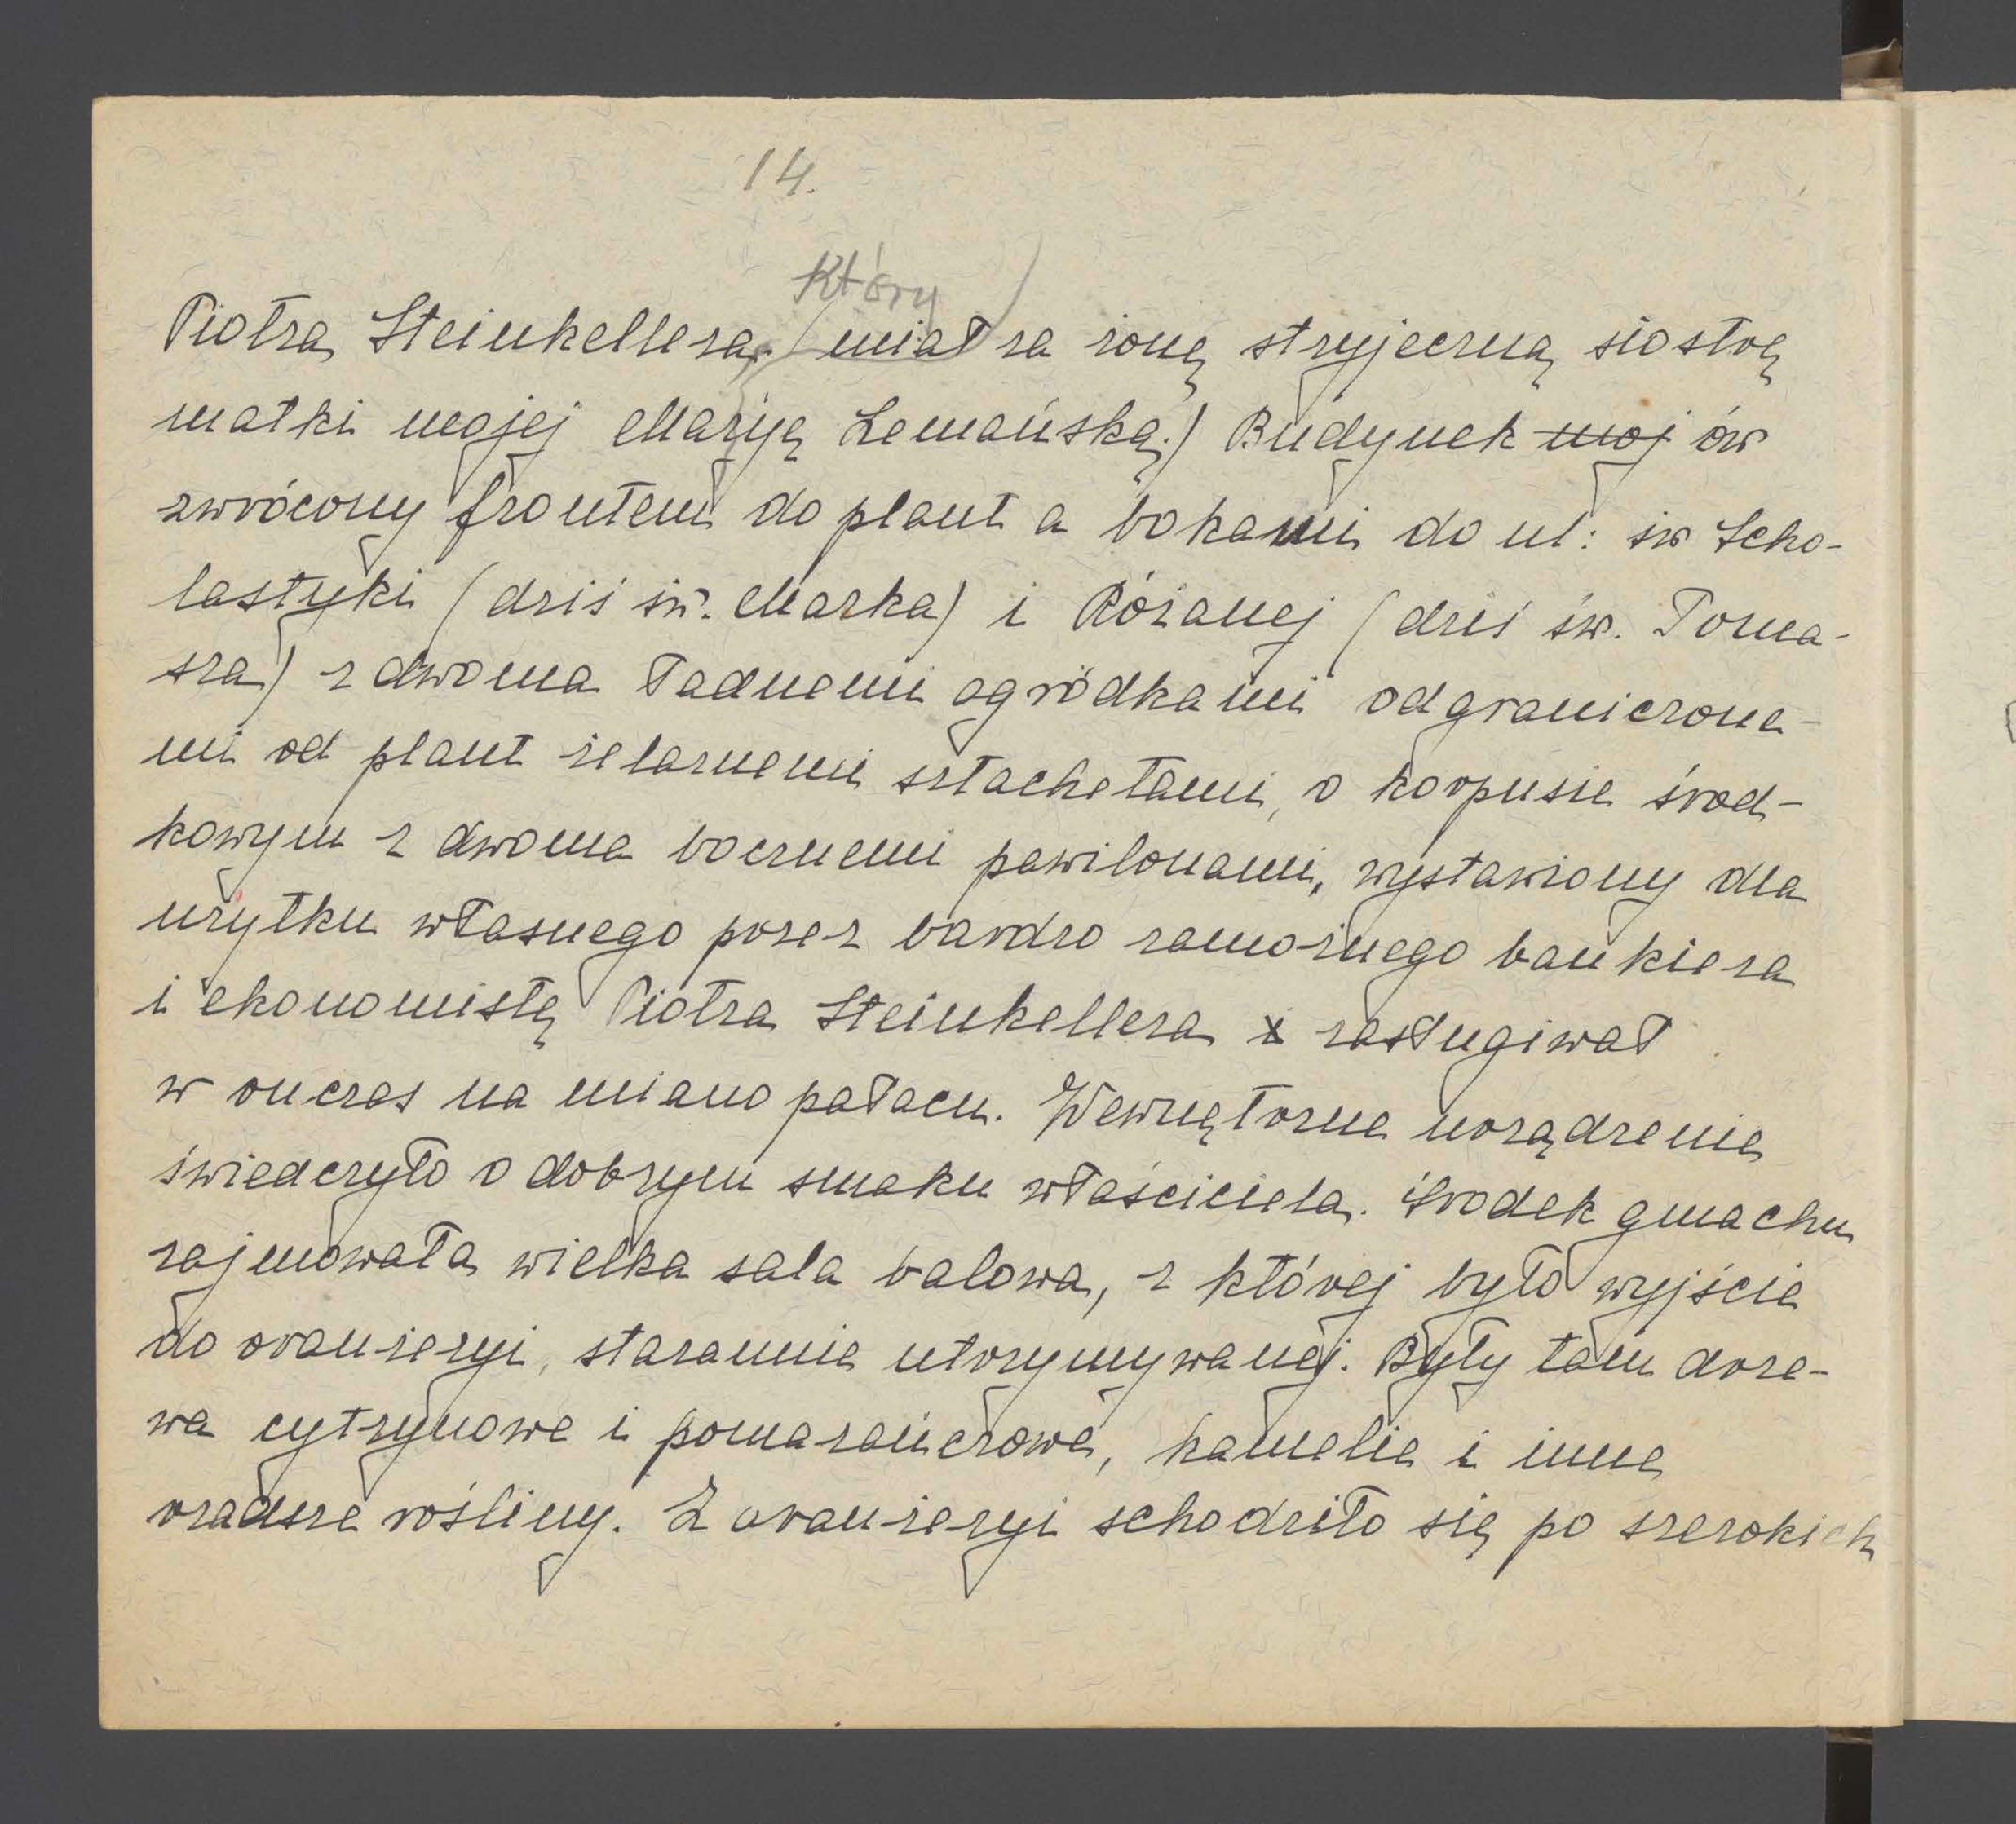 14.
który
Piotra Steinkellera, (miał za żonę stryjeczną siostrę
matki mojej Maryę Lemańską.) Budynek moj ów
zwrócony frontem do plant a bokami do ul: św Scho-
lastyki (dziś św. Marka) i Różanej (dziś św. Toma-
sza) z dwoma ładnemi ogródkami odgraniczone-
mi od plant żelaznemi sztachetami, o korpusie środ-
kowym z dwoma bocznemi pawilonami, wystawiony dla
użytku własnego przez bardzo zamożnego bankiera
i ekonomistę Piotra Steinkellera i zasługiwał
w onczas na miano pałacu. Wewnętrzne urządzenie
świadczyło o dobrym smaku właściciela. Środek gmachu
zajmowała wielka sala balowa, z której było wyjście
do oranżeryi, starannie utrzymywanej. Były tam drze-
wa cytrynowe i pomarańczowe, kamelie i inne
rzadsze rośliny. Z oranżeryi schodziło się po szerokich